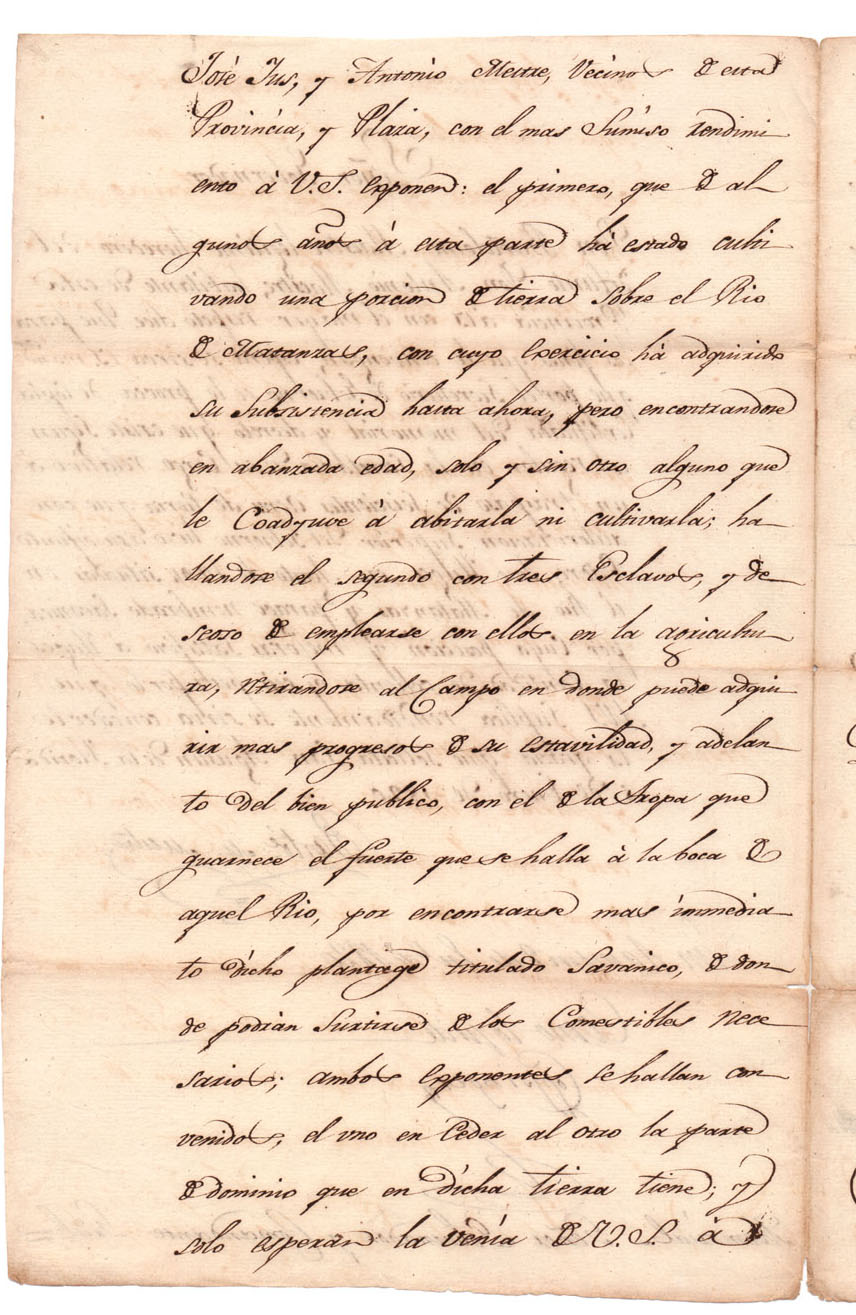 José Jus, y Antonio Mestre, Vecinos de esta
Provincia, y Plaza, con el mas Sumiso rendimi
ento à V.S. exponen: el primero, que de al-
gunos años à esta parte hà estado culti
vando una porcion de tierra sobre el Rio
de Matanzas, con cuyo exercicio hà adquirido
su Subsistencia hasta ahora, pero encontrandose
en abanzada edad, solo y sin otro alguno que
le Coadyuve à abitarla ni cultivarla; ha-
llandose el segundo con tres Esclavos, y de-
seoso de emplearse con ellos en la agricultu-
ra, retirandose al Campo en donde puede adqui-
rir mas progresos de su estavilidad, y adelan-
to del bien publico, con el de la tropa que
guarnece el fuerte que se halla à la boca de
aquel Rio, por encontrarse mas immedia-
to dicho plantage titulado Savanico, de don-
de podràn Surtirse de los Comestibles nece
sarios; ambos exponentes se hallan con-
venidos, el vno en Ceder al otro la parte
de dominio que en dicha tierra tiene; y
solo esperan la venia de V.S. à